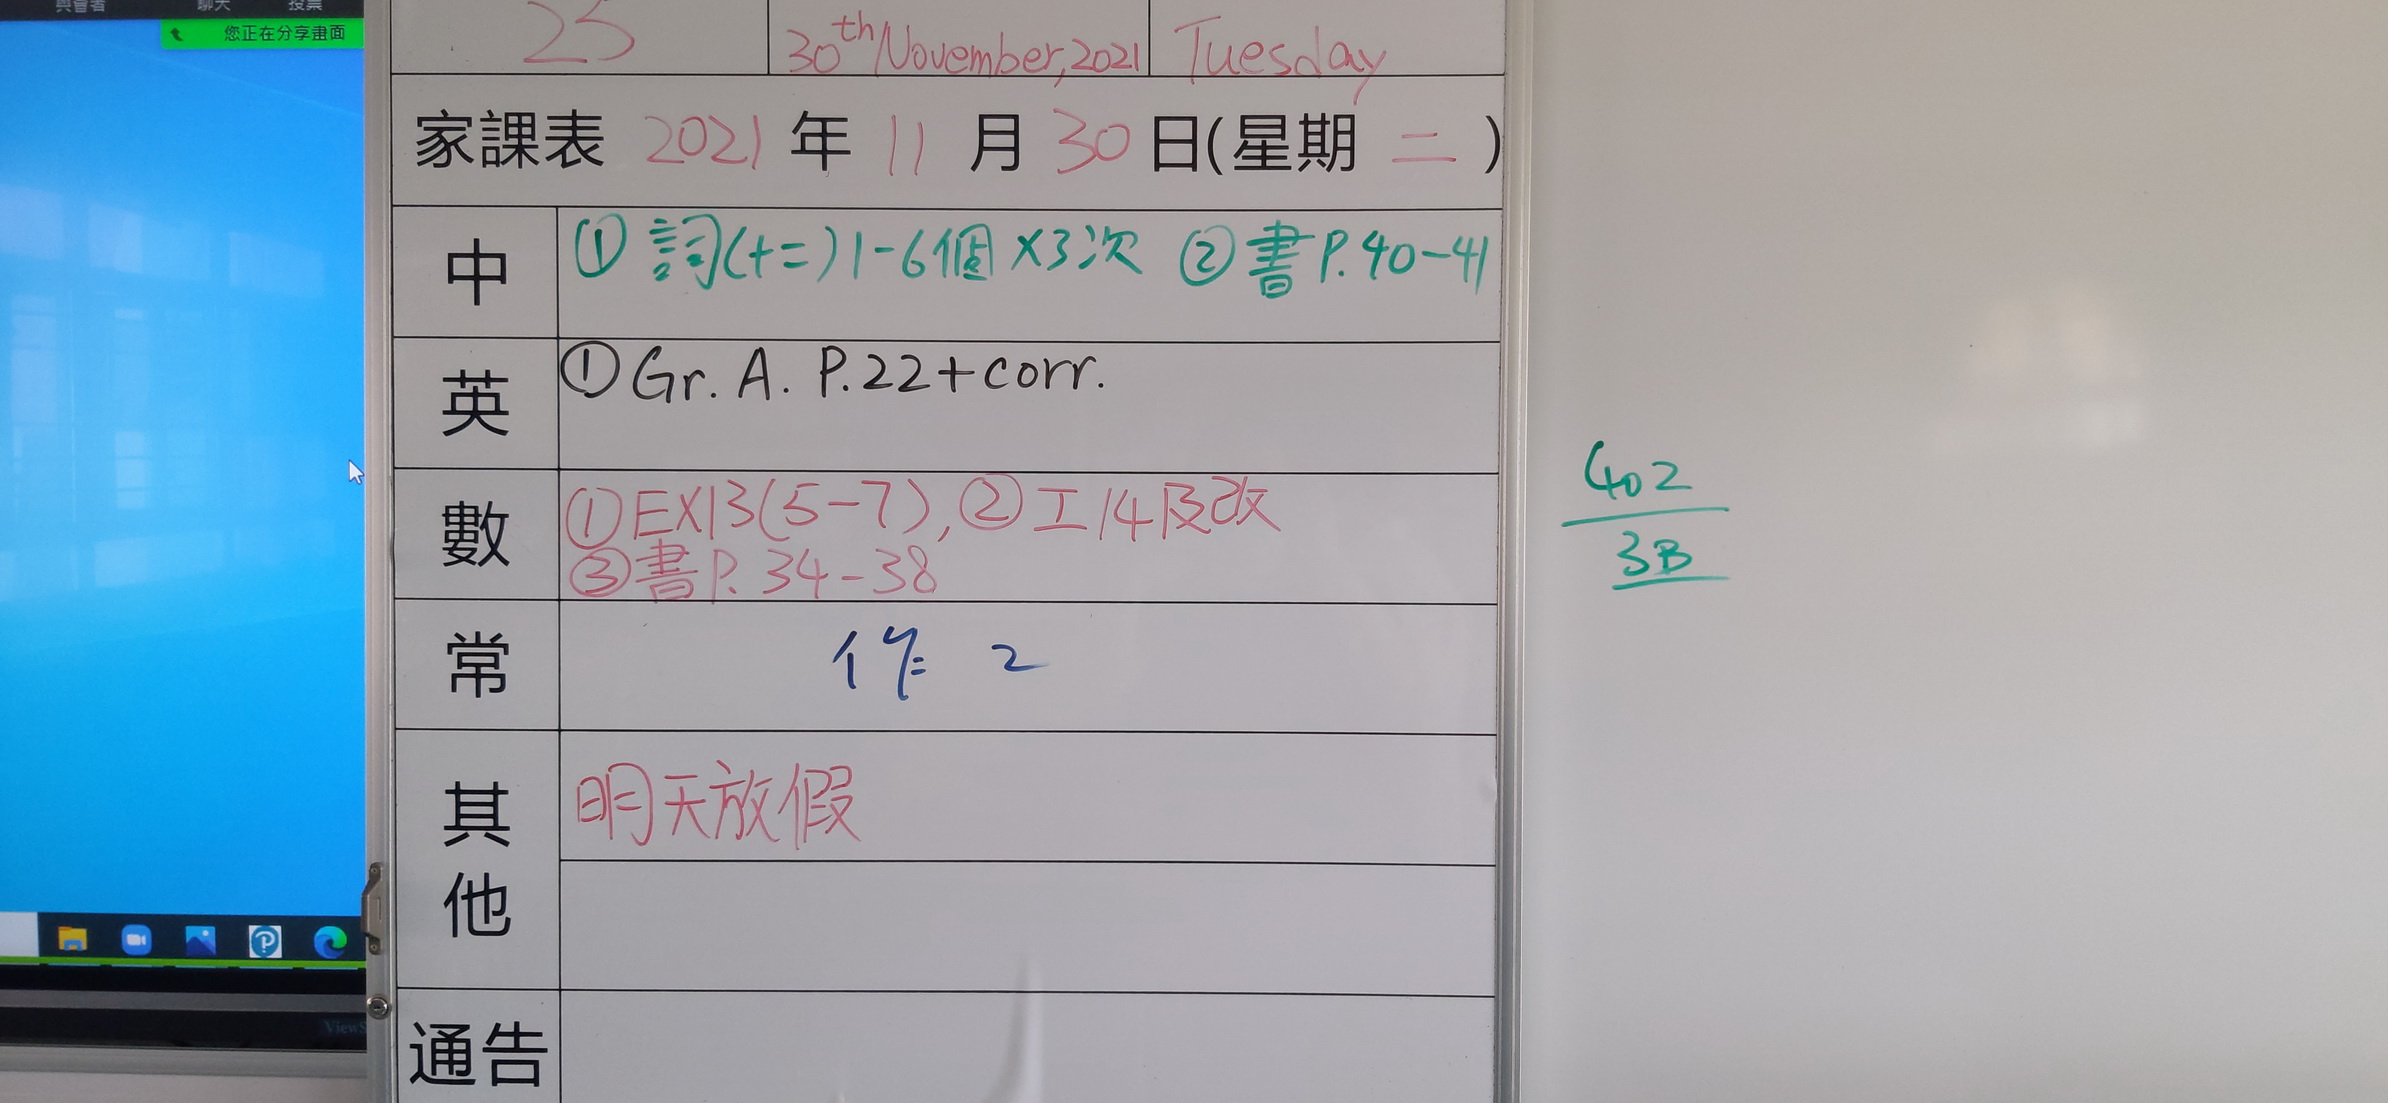 與會者 聊天 投票
您正在分享畫面
25 30th November, 2021 Tuesday
家課表 2021 年 11 月 30 日(星期 二 )
中 ① 詞(十二) 1-6個 ×3次 ② 書 P.40-41
英 ① Gr. A. P.22+corr.
數 ① EX13(5-7), ② 工14及改
③ 書P. 34-38
常 作 2
其他 明天放假
通告
402
3B
ViewS